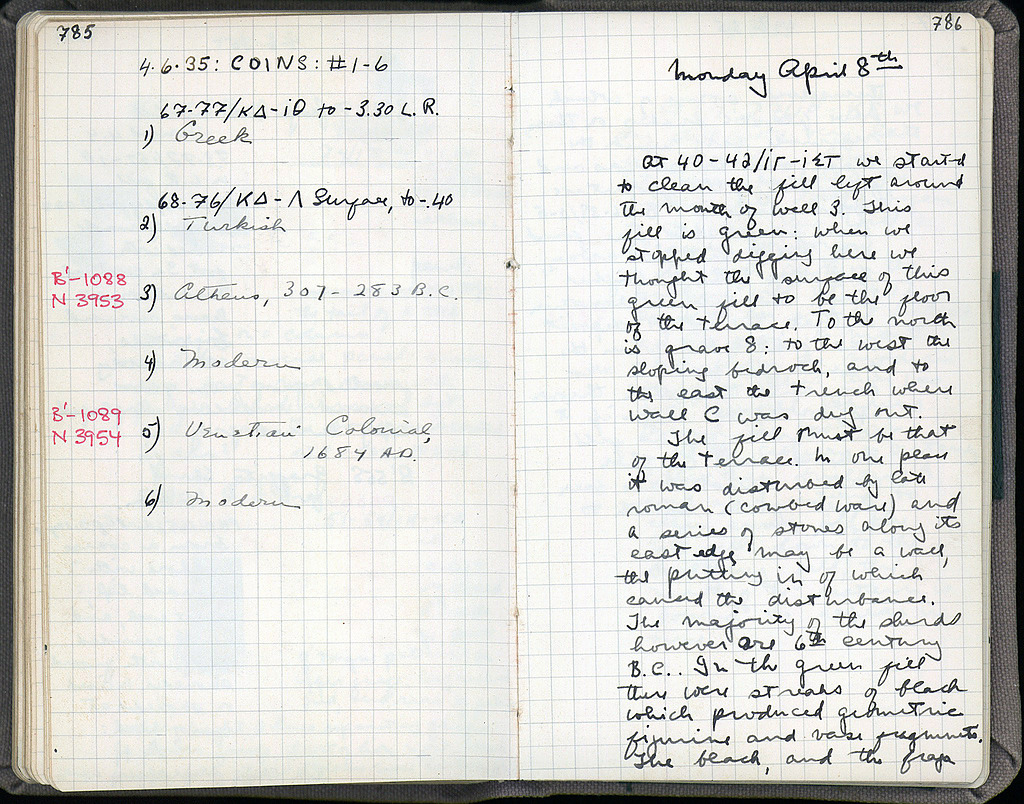 785
4.6.35: COINS: #1-6
67-77/ΚΔ-ιΘ to -3.30 L.R.
1) Greek
68-76/ΚΔ-Λ Surface, to -.40
2) Turkish
B'-1088
N 3953
3) Athens, 307-283 B.C.
4) Modern
B'-1089
N 3954
5) Venetian Colonial,
1684 AD.
6) Modern
786
Monday April 8th
At 40-42/ιΓ-ιΣΤ we started
to clean the fill left around
the mouth of well 3. This
fill is green: when we
stopped digging here we
thought the surface of this
green fill to be the floor
of the terrace. To the north
is grave 8: to the west the
sloping bedrock, and to
the east the trench where
wall C was dug out.
The fill must be that
of the terrace. In one place
it was disturbed by late
roman (combed ware) and
a series of stones along its
east edge may be a wall,
the putting in of which
caused the disturbance.
The majority of the sherds
however are 6th century
B.C.. In the green fill
there were streaks of black
which produced geometric
figurine and vase fragments.
The black, and the